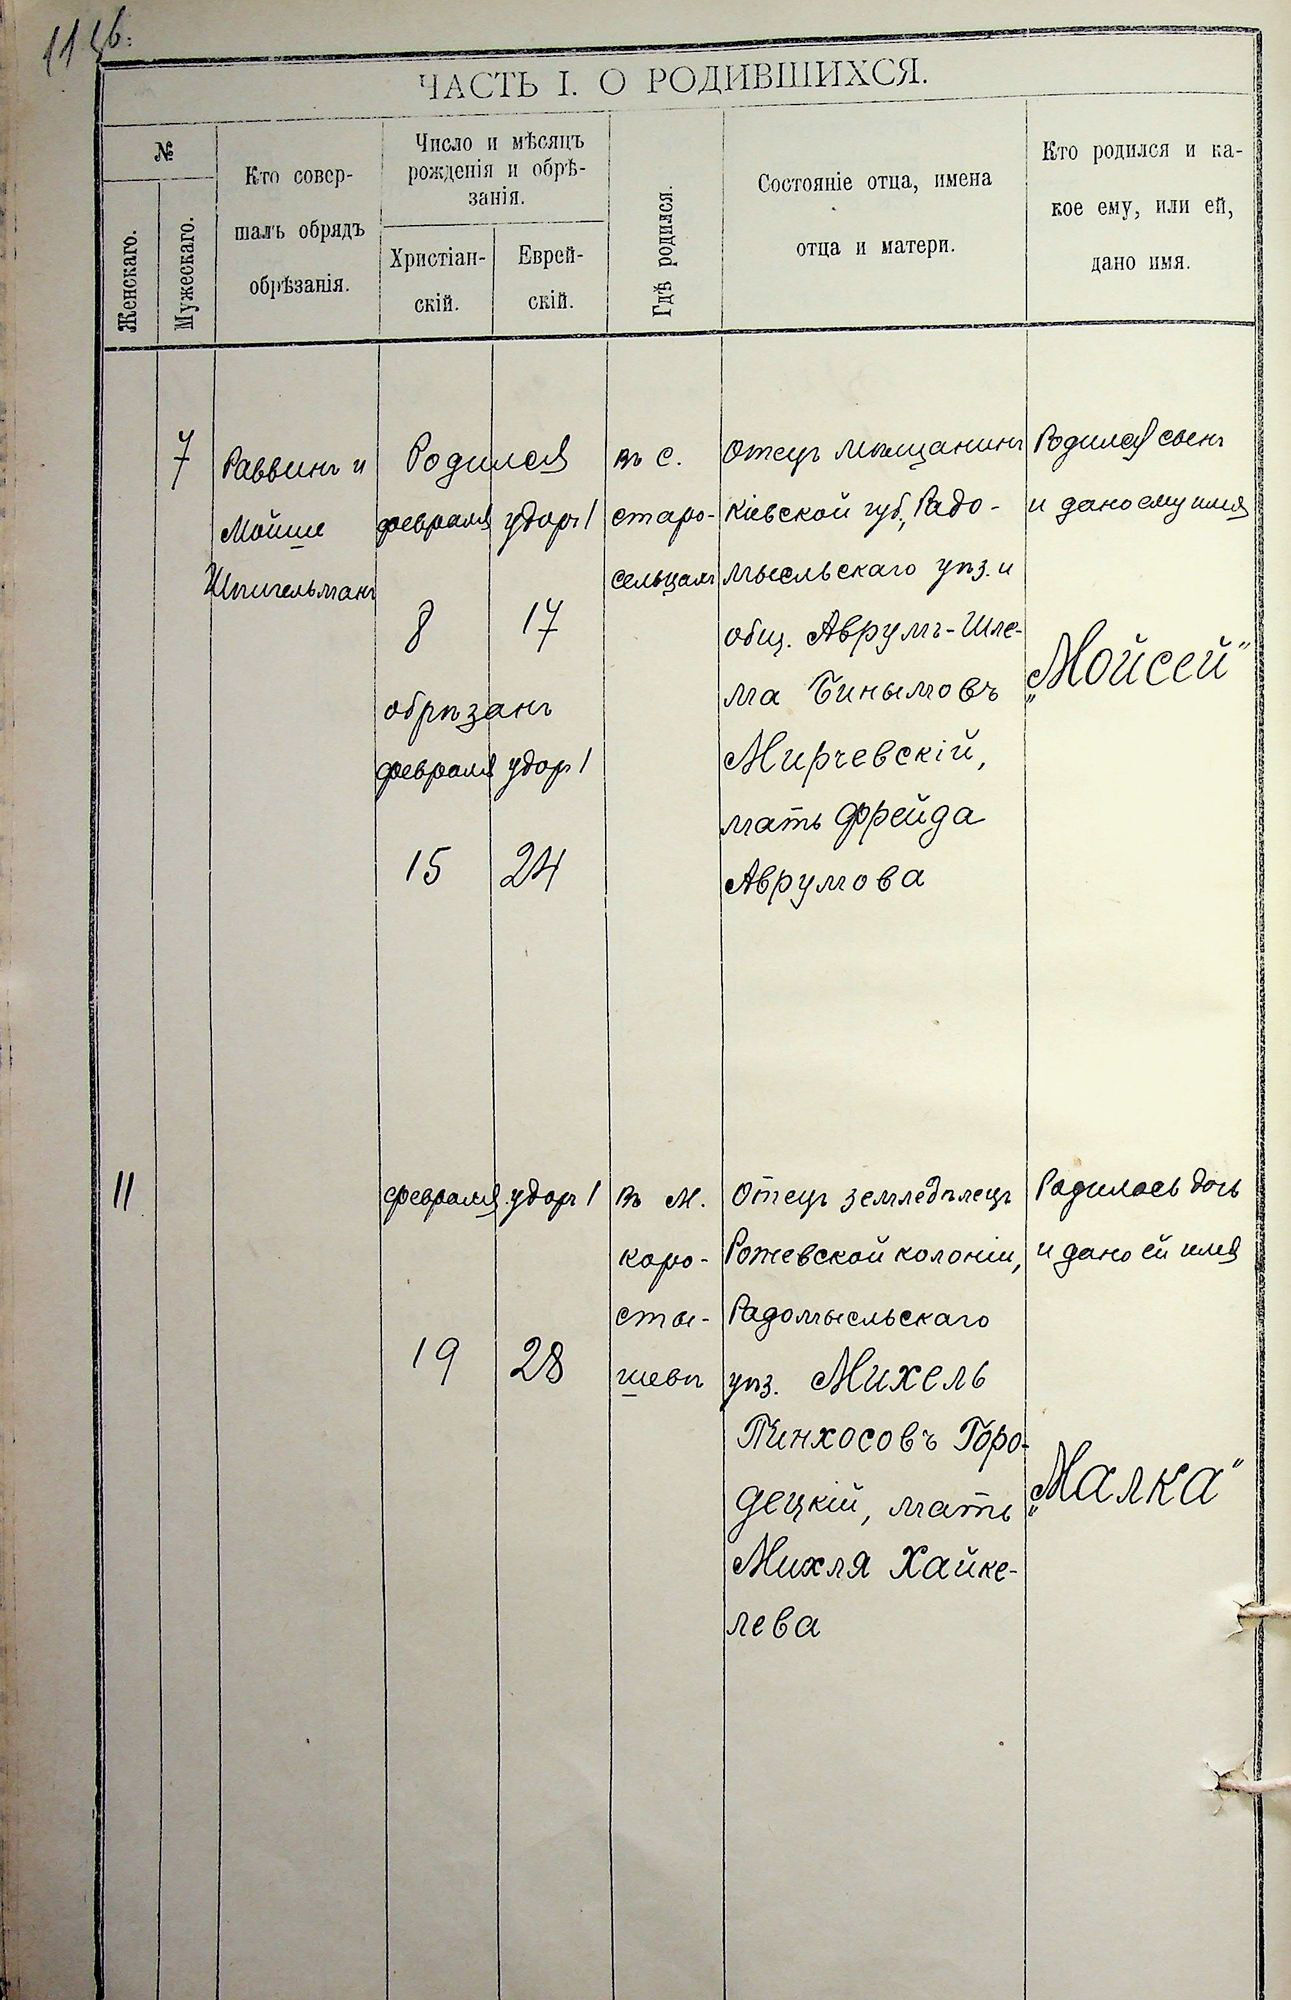 ЧАСТЬ I. О РОДИВШИХСЯ.
№
Женскаго.
Мужескаго.
Кто совер-
шалъ обрядъ
обрѣзанія.
Число и мѣсяцъ
рожденія и обрѣ-
занія.
Христіан-
скій.
Еврей-
скій.
Гдѣ родился.
Состояніе отца, имена
отца и матери.
Кто родился и ка-
кое ему, или ей,
дано имя.
7
Раввинъ и
Мойше
Шпигельманъ
Родился
февраля
8
обрѣзанъ
февраля
15
удоръ I
17
удоръ I
24
въ с.
старо-
сельцахъ
Отецъ мѣщанинъ
Кіевской губ., Радо-
мысльскаго уѣз. и
общ. Аврумъ-Шле-
ма Бинымовъ
Мирчевскій,
мать Фрейда
Аврумова
Родился сынъ
и дано ему имя
„Мойсей"
11
февраля
19
удоръ I
28
въ м.
коро-
сты-
шевѣ
Отецъ земледѣлецъ
Рожевской колоніи,
Радомысльскаго
уѣз. Михель
Пинхосовъ Горо-
децкій, мать
Михля Хайке-
лева
Родилась дочь
и дано ей имя
„Малка"